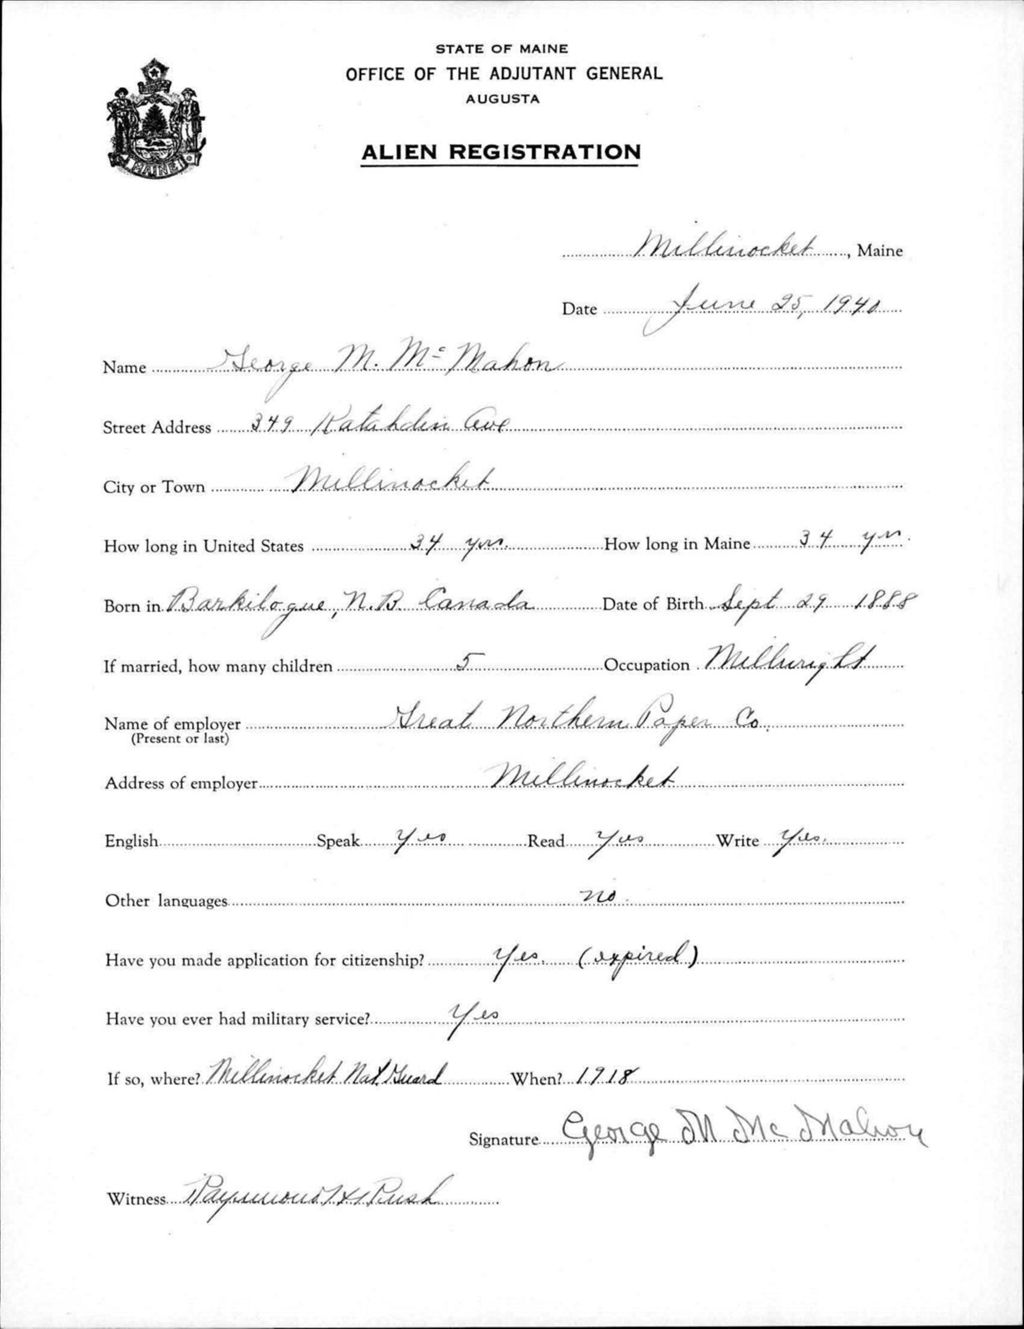 STATE OF MAINE
OFFICE OF THE ADJUTANT GENERAL
AUGUSTA
ALIEN REGISTRATION
MAINE
Millinocket, Maine
Date June 25, 1940
Name George M. Mc Mahon
Street Address 349 Katahdin Ave
City or Town Millinocket
How long in United States 34 yrs. How long in Maine 34 yrs.
Born in Barkilogue, N.B. Canada Date of Birth Sept 29 1888
If married, how many children 5 Occupation Millwright
Name of employer Great Northern Paper Co.
(Present or last)
Address of employer Millinocket
English Speak Yes Read Yes Write Yes.
Other languages no.
Have you made application for citizenship? Yes. (expired)
Have you ever had military service? Yes
If so, where? Millinocket Nat Guard When? 1918
Signature George M Mc Mahon
Witness Raymond H Rush